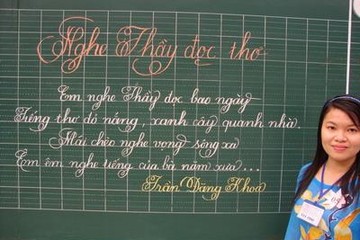 Nghe Thầy đọc thơ
Em nghe Thầy đọc bao ngày
Tiếng thơ đỏ nắng, xanh cây quanh nhà.
Mái chèo nghe vọng sông xa
Êm êm nghe tiếng của bà năm xưa ...
Trần Đăng Khoa